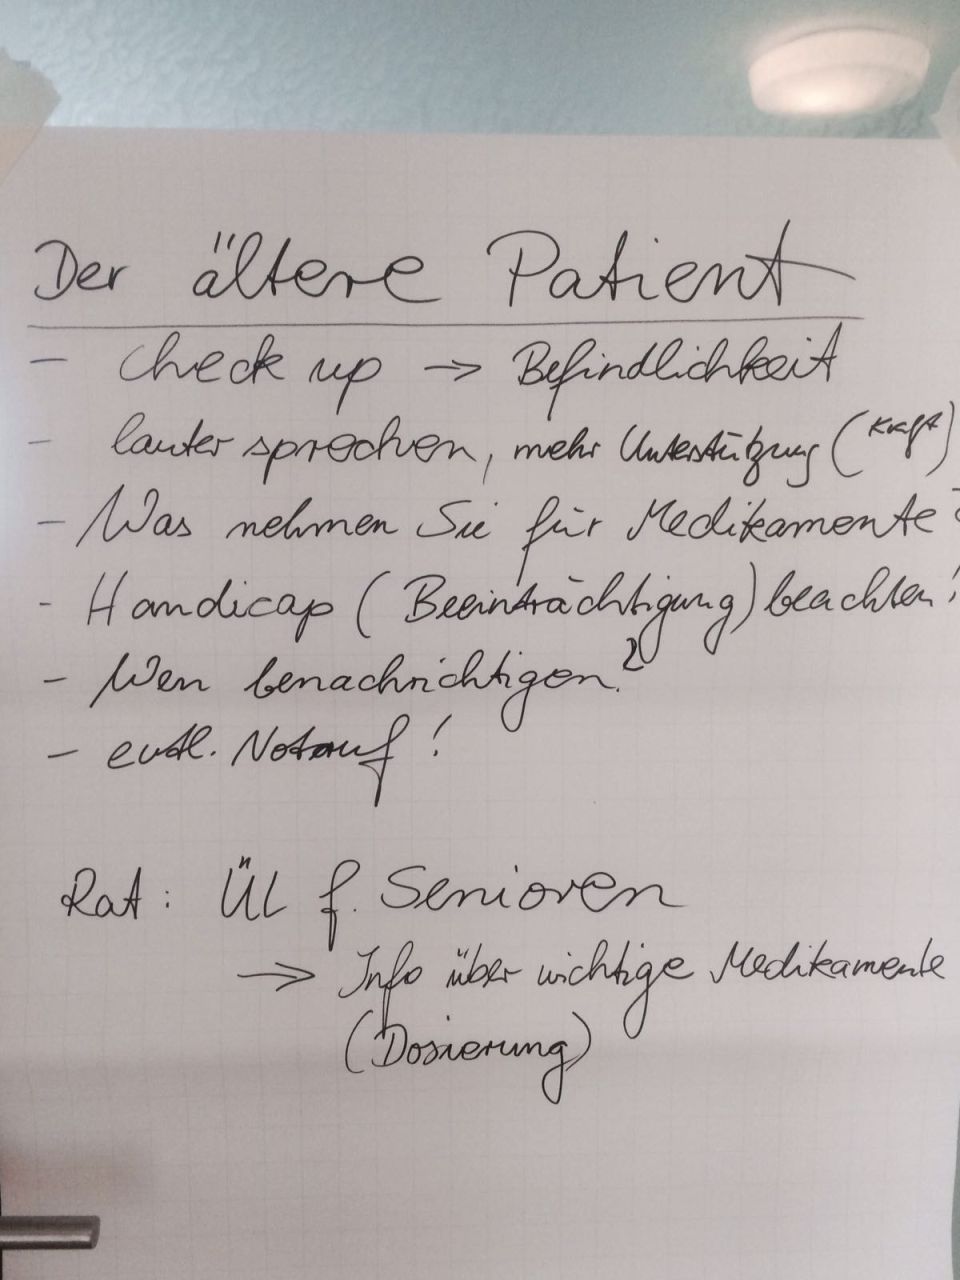 Der ältere Patient
- Check up → Befindlichkeit
- lauter sprechen, mehr Unterstützung (Kraft)
- Was nehmen Sie für Medikamente?
- Handicap (Beeinträchtigung) beachten!
- Wen benachrichtigen?
- evtl. Notruf!
Rat: ÜL f. Senioren
→ Info über wichtige Medikamente
(Dosierung)